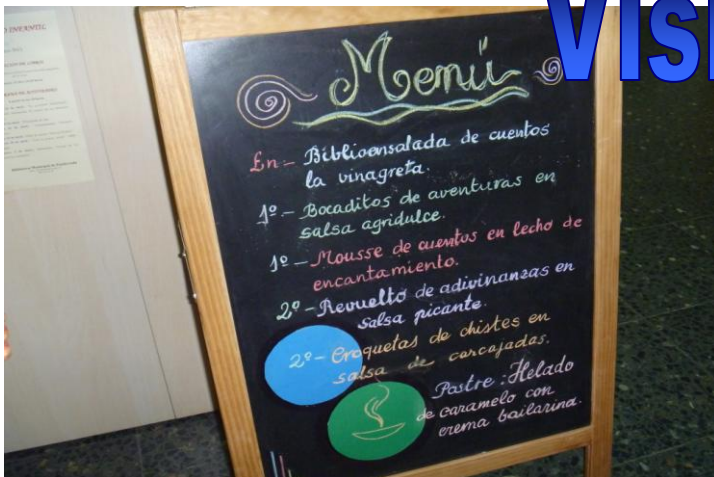 VISI
Menú
En:- Biblioensalada de cuentos
la vinagreta.
1º.- Bocaditos de aventuras en
salsa agridulce.
1º - Mousse de cuentos en lecho de
encantamiento.
2º - Revuelto de adivinanzas en
salsa picante.
2º - Croquetas de chistes en
salsa de carcajadas.
Postre: Helado
de caramelo con
crema bailarina.